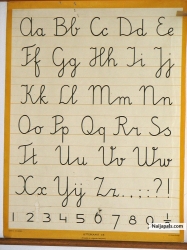 Aa Bb Cc Dd Ee
Ff Gg Hh Ii Jj
Kk Ll Mm Nn
Oo Pp Qq Rr Ss
Tt Uu Vv Ww
Xx Yy Zz.,:;?!
1 2 3 4 5 6 7 8 9 0
Naijapals.com